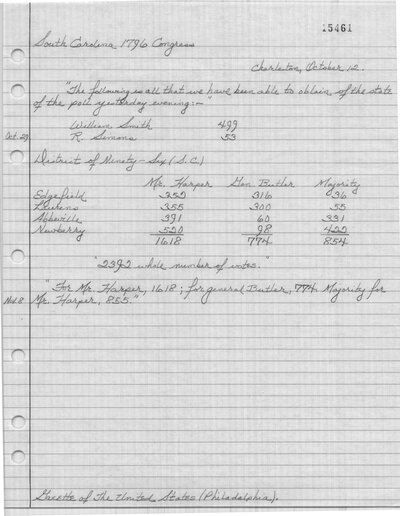 15461
South Carolina 1796 Congress
Charleston, October 12.
"The following is all that we have been able to obtain of the state
of the poll yesterday evening:-
William Smith 499
Oct. 29 R. Simons 53
District of Ninety-Six (S.C.)
Mr. Harper Gen Butler Majority
Edgefield 352 316 36
Laurens 355 300 55
Abbeville 391 60 331
Newberry 520 98 422
1618 774 854
"2392 whole number of votes."
"For Mr. Harper, 1618; for general Butler, 774 Majority for
Nov. 8 Mr. Harper, 855."
Gazette of The United States (Philadelphia).